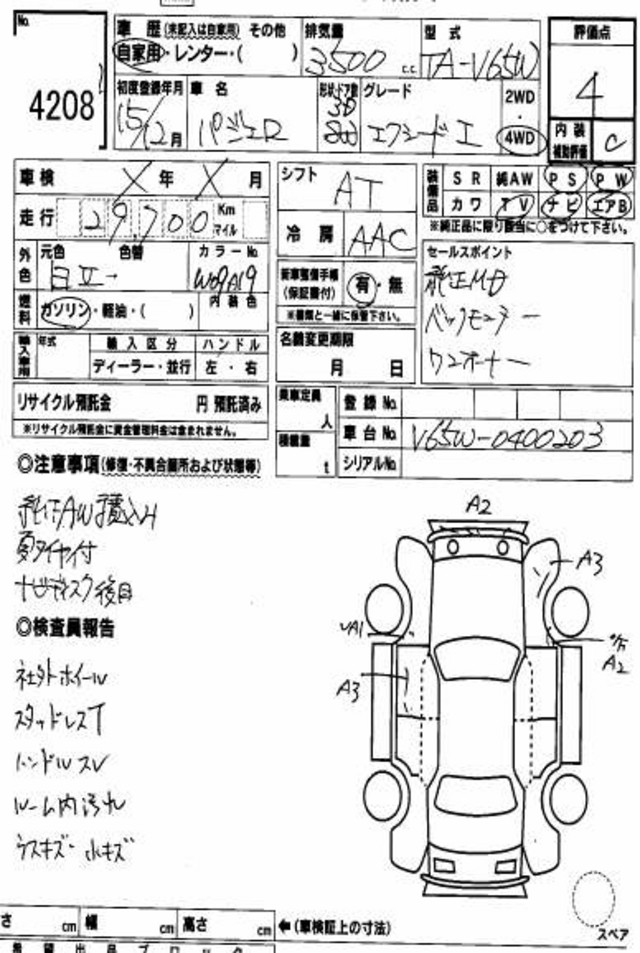 No.
4208
車歴 (未記入は自家用) その他
自家用・レンター・( )
排気量
3500 c.c.
型式
TA-V65W
評価点
4
初度登録年月
15/12月
車名
パジェロ
形状・ドア数
グレード
エクシード I
2WD
・
4WD
内装
補助評価
C
車検 X年 X月
走行 29,700 Km
マイル
シフト
AT
冷房
AAC
装備品
SR 純AW PS PW
カワ TV ナビ エアB
※純正品に限り該当に○をつけて下さい。
外色
元色 色替 カラーNo.
燃料
ガソリン・軽油・( )
内装色
新車整備手帳
(保証書付)
有・無
※書類と一緒に保管下さい。
セールスポイント
純正MD
バックモニター
ワンオーナー
輸入車用
年式
輸入区分
ディーラー・並行
ハンドル
左・右
名義変更期限
月 日
リサイクル預託金 円 預託済み
※リサイクル預託金に資金管理料金は含まれません。
乗車定員
人
積載量
t
登録No.
車台No. V65W-0400203
シリアルNo.
◎注意事項(修復・不具合箇所および状態等)
純正AW積込み
夏タイヤ付
ナビディスク後日
◎検査員報告
社外ホイール
スタッドレスT
ハンドルスレ
ルーム内汚れ
ウスキズ・小キズ
A2
A3
A2
A3
さ cm 幅 cm 高さ cm
←(車検証上の寸法)
スペア
希望出品ブロック